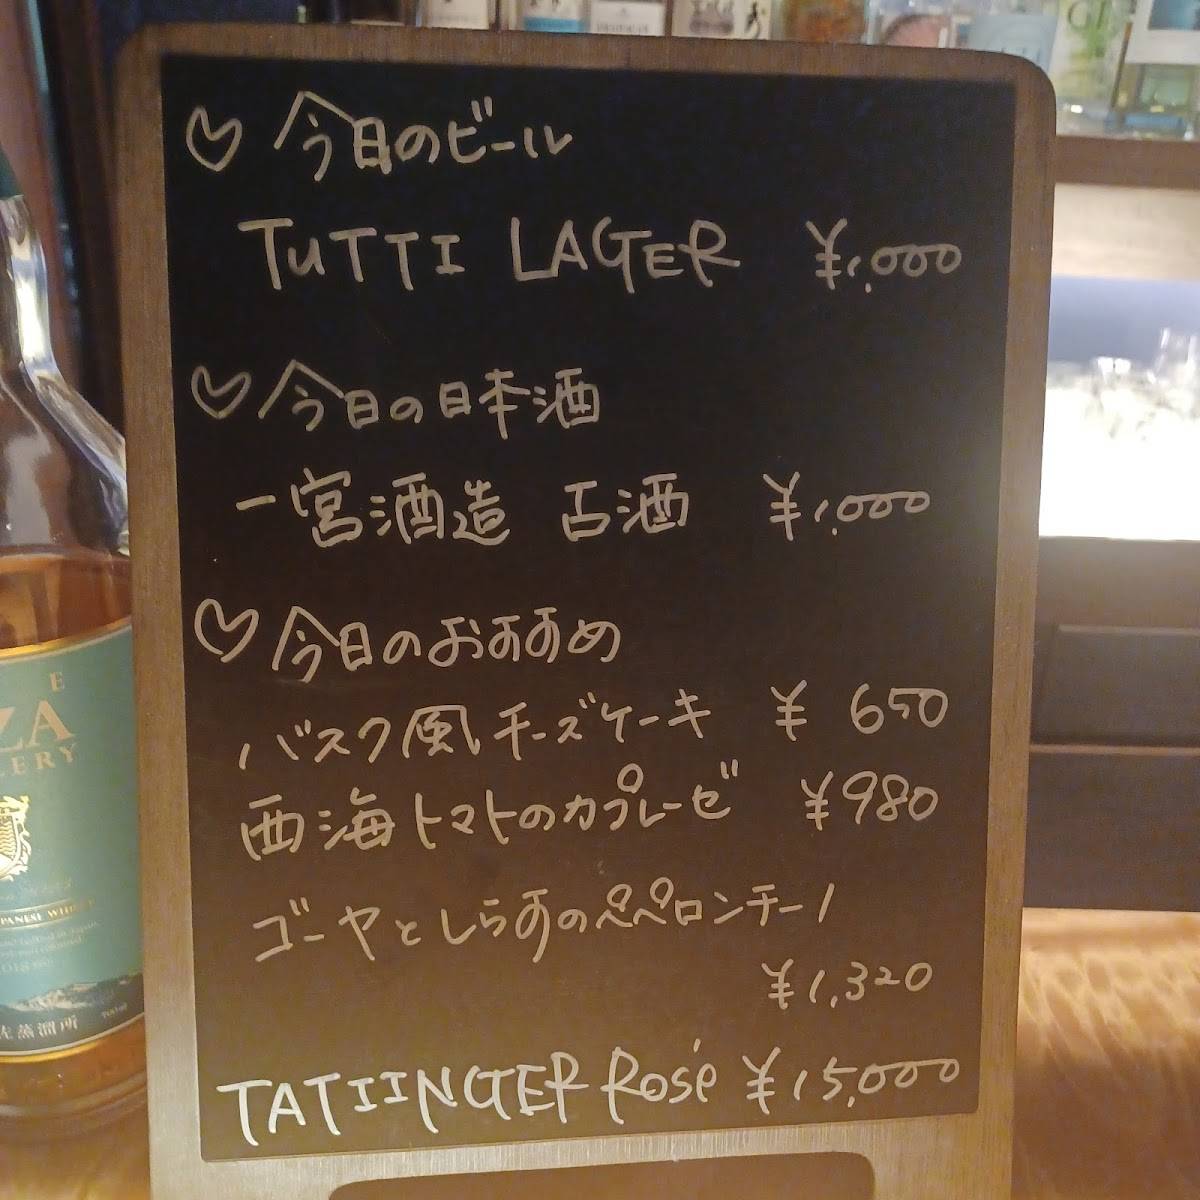 ♡ 今日のビール
TUTTI LAGER ¥1,000
♡ 今日の日本酒
一宮酒造 古酒 ¥1,000
♡ 今日のおすすめ
バスク風チーズケーキ ¥650
西海トマトのカプレーゼ ¥980
ゴーヤとしらすのペペロンチーノ
¥1,320
TATIINGER Rosé ¥15,000
E
ZA
LLERY
PANESE WHISKY
蒸溜所